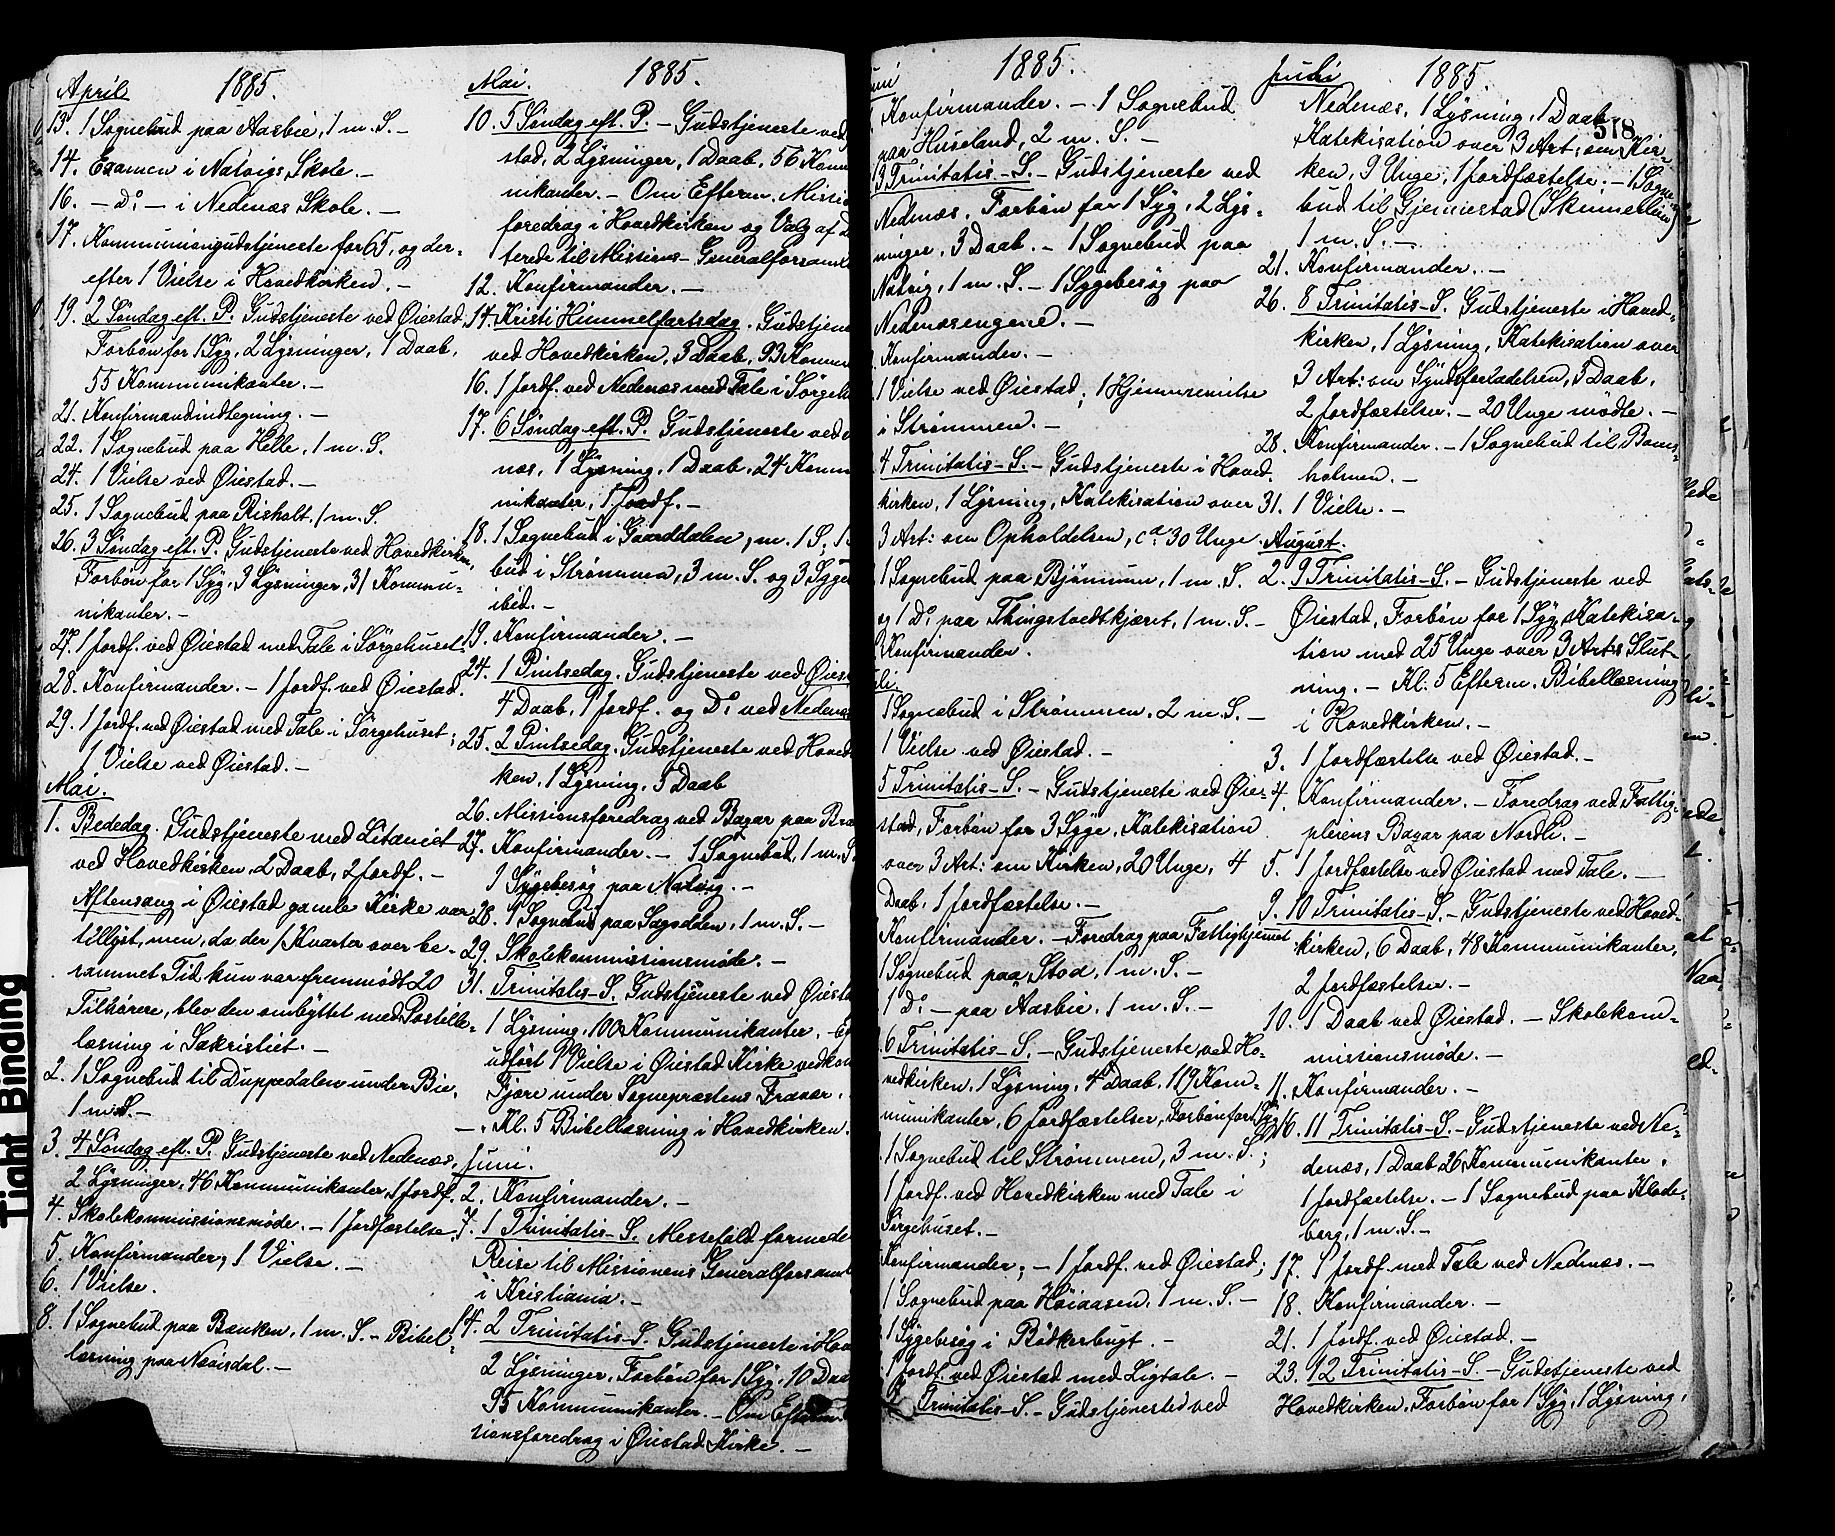 April 1885.
13. 1 Sognebud paa Aasbie, 1 m. S. –
14. Examen i Natvigs Skole. –
16. – Do – i Nedenæs Skole. –
17. Kommuniongudstjeneste for 65, og der-
efter 1 Vielse i Hovedkirken. –
19. 2 Søndag eft. P. Gudstjeneste ved Øiestad,
Forbøn for 1 Syg, 2 Lysninger, 1 Daab,
55 Kommunikanter. –
21. Konfirmandindtegning. –
22. 1 Sognebud paa Helle, 1 m. S.
24. 1 Vielse ved Øiestad. –
25. 1 Sognebud paa Risholt, 1 m. S.
26. 3 Søndag eft. P. Gudstjeneste ved Hovedkirken,
Forbøn for 1 Syg, 3 Lysninger, 31 Kommu-
nikanter. –
27. 1 Jordf. ved Øiestad med Tale i Sørgehuset.
28. Konfirmander. – 1 Jordf. ved Øiestad.
29. 1 Jordf. ved Øiestad med Tale i Sørgehuset;
1 Vielse ved Øiestad. –
Mai.
1. Bededag. Gudstjeneste med Litaniet
ved Hovedkirken, 2 Daab, 2 Jordf. –
Aftensang i Øiestad gamle Kirke var
tillyst, men, da der 1 Kvarter over be-
rammet Tid kun var fremmødt 20
Tilhørere, blev den ombyttet med Postille-
læsning i Sakristiet. –
2. 1 Sognebud til Duppedalen under Bie,
1 m. S. –
3. 4 Søndag eft. P. Gudstjeneste ved Nedenæs,
2 Lysninger, 46 Kommunikanter, 1 Jordf.
4. Skolekommissionsmøde. – 1 Jordfæstelse.
5. Konfirmander, 1 Vielse. –
6. 1 Vielse.
8. 1 Sognebud paa Bænken, 1 m. S. – Bibel-
læsning paa Næsdal. –
Mai. 1885.
10. 5 Søndag eft. P. – Gudstjeneste ved
stad, 2 Lysninger, 1 Daab, 56 Kommu
nikanter. – Om Efterm. Missio
foredrag i Hovedkirken og Valg af D
terede til Missions-Generalforsaml
12. Konfirmander. –
14. Kristi Himmelfartsdag. Gudstjen
ved Hovedkirken, 3 Daab, 93 Kommu
16. 1 Jordf. ved Nedenæs med Tale i Sørgeh
17. 6 Søndag eft. P. Gudstjeneste ved
næs, 1 Lysning, 1 Daab, 24 Komm
nikanter, 1 Jordf. –
18. 1 Sognebud i Gaarddalen, m. 1 S; 1 S
bud i Strømmen, 3 m. S. og 3 Syge
ibid. –
19. Konfirmander. –
24. 1 Pintsedag. Gudstjeneste ved Øies
4 Daab, 1 Jordf. og Do ved Nedenæ
25. 2 Pintsedag. Gudstjeneste ved Hoved
ken, 1 Lysning, 5 Daab
26. Missionsforedrag ved Bazar paa Bra
27. Konfirmander. – 1 Sognebud, 1 m. S.
1 Sygebesøg paa Natvig. –
28. 1 Sognebud paa Sagodden, 1 m. S. –
29. Skolekommissionsmøde. –
31. Trinitatis-S. Gudstjeneste ved Øiesta
1 Lysning, 100 Kommunikanter. –
udført 1 Vielse i Øiestad Kirke ved
Fjære under Sognepræstens Fravær.
–. Kl. 5 Bibellæsning i Hovedkirken.
Juni.
2. Konfirmander. –
7. 1 Trinitatis-S. Messefald formede
Reise til Missionens Generalforsaml
i Kristiania. –
14. 2 Trinitatis-S. Gudstjeneste i Hov
2 Lysninger, Forbøn for 1 Syg, 10 Daa
95 Kommunikanter. – Om Efterm.
sionsforedrag i Øiestad Kirke. –
uni 1885.
Konfirmander. – 1 Sognebud
paa Huseland, 2 m. S. –
3 Trinitatis-S. – Gudstjeneste ved
Nedenæs, Forbøn for 1 Syg, 2 Lys-
ninger, 3 Daab. – 1 Sognebud paa
Natvig, 1 m. S. – 1 Sygebesøg paa
Nedenæsengene. –
Konfirmander. –
1 Vielse ved Øiestad; 1 Hjemmevielse
i Strømmen. –
4 Trinitatis-S. – Gudstjeneste i Hoved-
kirken, 1 Lysning, Katekisation over
3 Art: om Opholdelsen, ca. 30 Unge.
1 Sognebud paa Bjønnum, 1 m. S.
og 1 Do paa Thingstvedtkjæret, 1 m. S. –
Konfirmander.
li
1 Sognebud i Strømmen. 2 m. S. –
1 Vielse ved Øiestad. –
5 Trinitatis-S. – Gudstjeneste ved Øie-
stad, Forbøn for 3 Syge, Katekisation
over 3 Art: om Kirken, 20 Unge, 4
Daab, 1 Jordfæstelse. –
Konfirmander. – Foredrag paa Fattighjemmet
1 Sognebud paa Stod, 1 m. S. –
1 Do – paa Aasbie, 1 m. S. –
6 Trinitatis-S. – Gudstjeneste ved Ho-
vedkirken, 1 Lysning, 4 Daab, 119 Kom-
munikanter, 6 Jordfæstelser, Forbøn for 1 Syg.
1 Sognebud til Strømmen, 3 m. S.;
1 Jordf. ved Hovedkirken med Tale i
Sørgehuset. –
Konfirmander; – 1 Jordf. ved Øiestad;
1 Sognebud paa Høiaasen, 1 m. S. –
1 Sygebesøg i Bødkerbugt. –
1 Jordf. ved Øiestad med Ligtale. –
Trinitatis-S. – Gudstjenested ved
Juli 1885.
578
Nedenæs, 1 Lysning, 1 Daab,
Katekisation over 3 Art: om Kir-
ken, 9 Unge, 1 Jordfæstelse; – 1 Sogne-
bud til Gjennestad (Skumeslien)
1 m. S. –
21. Konfirmander. –
26. 8 Trinitatis-S. Gudstjeneste i Hoved-
kirken, 1 Lysning, Katekisation over
3 Art: om Syndsforladelsen, 5 Daab,
2 Jordfæstelser. – 20 Unge mødte. –
28. Konfirmander. – 1 Sognebud til Boms-
holmen. –
31. 1 Vielse. –
August.
2. 9 Trinitatis-S. – Gudstjeneste ved
Øiestad, Forbøn for 1 Syg, Katekisa-
tion med 25 Unge over 3 Art:s Slut-
ning. – Kl. 5 Efterm. Bibellæsning
i Hovedkirken. –
3. 1 Jordfæstelse ved Øiestad. –
4. Konfirmander. – Foredrag ved Fattig-
pleiens Bazar paa Nordli. –
5. 1 Jordfæstelse ved Øiestad med Tale. –
9. 10 Trinitatis-S. – Gudstjeneste ved Hoved-
kirken, 6 Daab, 48 Kommunikanter,
2 Jordfæstelser. –
10. 1 Daab ved Øiestad. – Skolekom-
missionsmøde. –
11. Konfirmander. –
16. 11 Trinitatis-S. – Gudstjeneste ved Ne-
denæs, 1 Daab, 26 Kommunikanter,
1 Jordfæstelse. – 1 Sognebud paa Klode-
berg, 1 m. S. –
17. 1 Jordf. med Tale ved Nedenæs. –
18. Konfirmander. –
21. 1 Jordf. ved Øiestad. –
23. 12 Trinitatis-S. – Gudstjeneste ved
Hovedkirken, Forbøn for 1 Syg, 1 Lysning,
Tight Binding